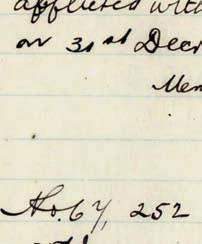 afflicted with
on 31st Decr
Mem
No. 67, 252